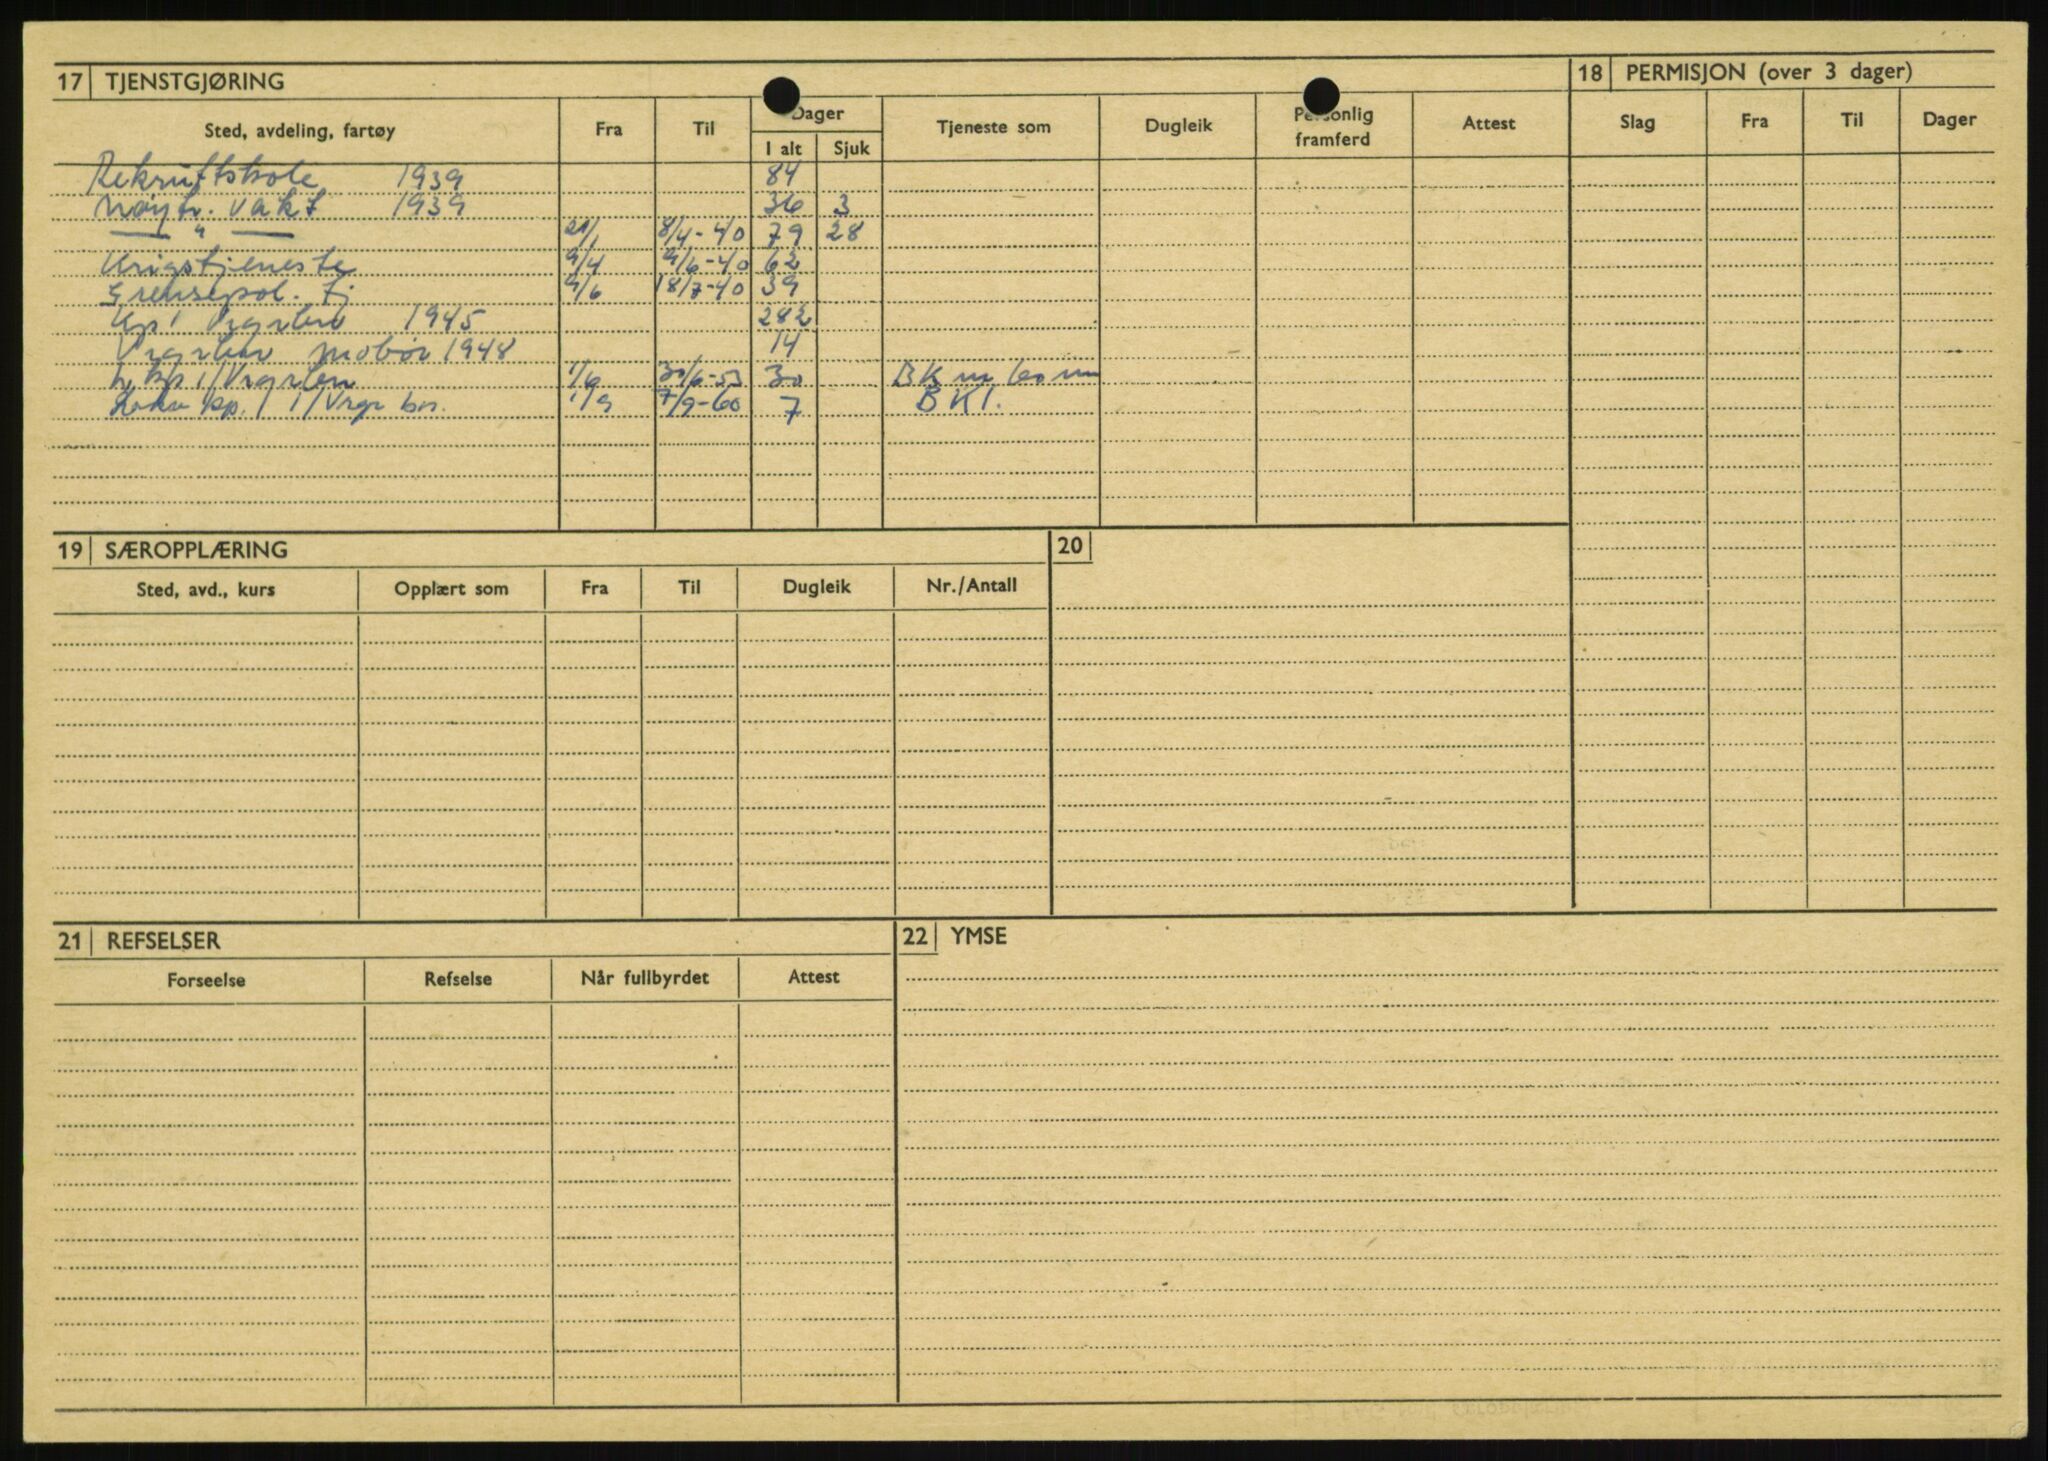 17 TJENSTGJØRING
18 PERMISJON (over 3 dager)
Sted, avdeling, fartøy Fra Til Dager I alt Sjuk Tjeneste som Dugleik Personlig framferd Attest
Slag Fra Til Dager
Rekruttskole 1939 84
Nøytr. vakt 1939 36 3
— " — 21/1 8/4-40 79 28
Krigstjeneste 9/4 9/6-40 62
Grensepol. tj 9/6 18/7-40 39
1945 282
Vrgrbn mobør 1948 14
kp 1/Vrgrbn 1/6 30/6-53 30 BK m 60 mm
kp. 1/Vrgr bn. 1/9 7/9-60 7 BK1.
19 SÆROPPLÆRING
20
Sted, avd., kurs Opplært som Fra Til Dugleik Nr./Antall
21 REFSELSER
22 YMSE
Forseelse Refselse Når fullbyrdet Attest